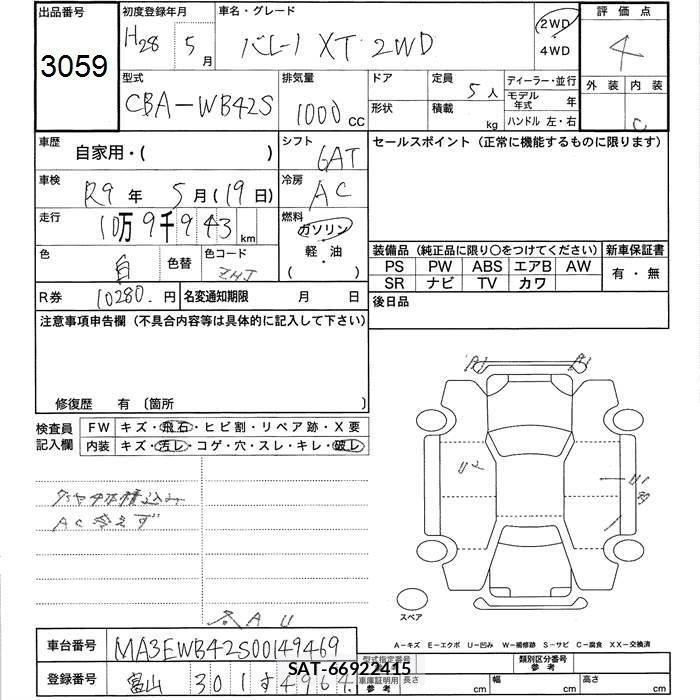 出品番号
3059
初度登録年月
H28 5月
車名・グレード
バレーノ XT 2WD
2WD
4WD
評価点
4
外装 内装
C
型式
CBA-WB42S
排気量
1000cc
ドア
形状
定員 5人
積載 kg
ディーラー・並行
モデル年式 年
ハンドル 左・右
車歴
自家用・( )
シフト
6AT
セールスポイント（正常に機能するものに限ります）
車検
R9年 5月(19日)
冷房
AC
走行
10万9千943km
燃料
ガソリン
軽・油
( )
色
白
色替
色コード
ZHJ
装備品（純正品に限り○をつけてください）
新車保証書
PS PW ABS エアB AW
SR ナビ TV カワ
有・無
R券
10280.円
名変通知期限 月 日
後日品
注意事項申告欄（不具合内容等は具体的に記入して下さい）
修復歴 有〔箇所 〕
検査員記入欄
FW キズ・飛石・ヒビ割・リペア跡・X要
内装 キズ・汚レ・コゲ・穴・スレ・キレ・破レ
A1 A1
U2
U1
AC冷えず
スペア
A-キズ E-エクボ U-凹み W-補修跡 S-サビ C-腐食 XX-交換済
車台番号
MA3EWB42S00149469
SAT-66922415
型式指定番号
類別区分番号
参考
登録番号
富山 301 す 4964
車庫証明用
参考
長さ cm
幅 cm
高さ cm